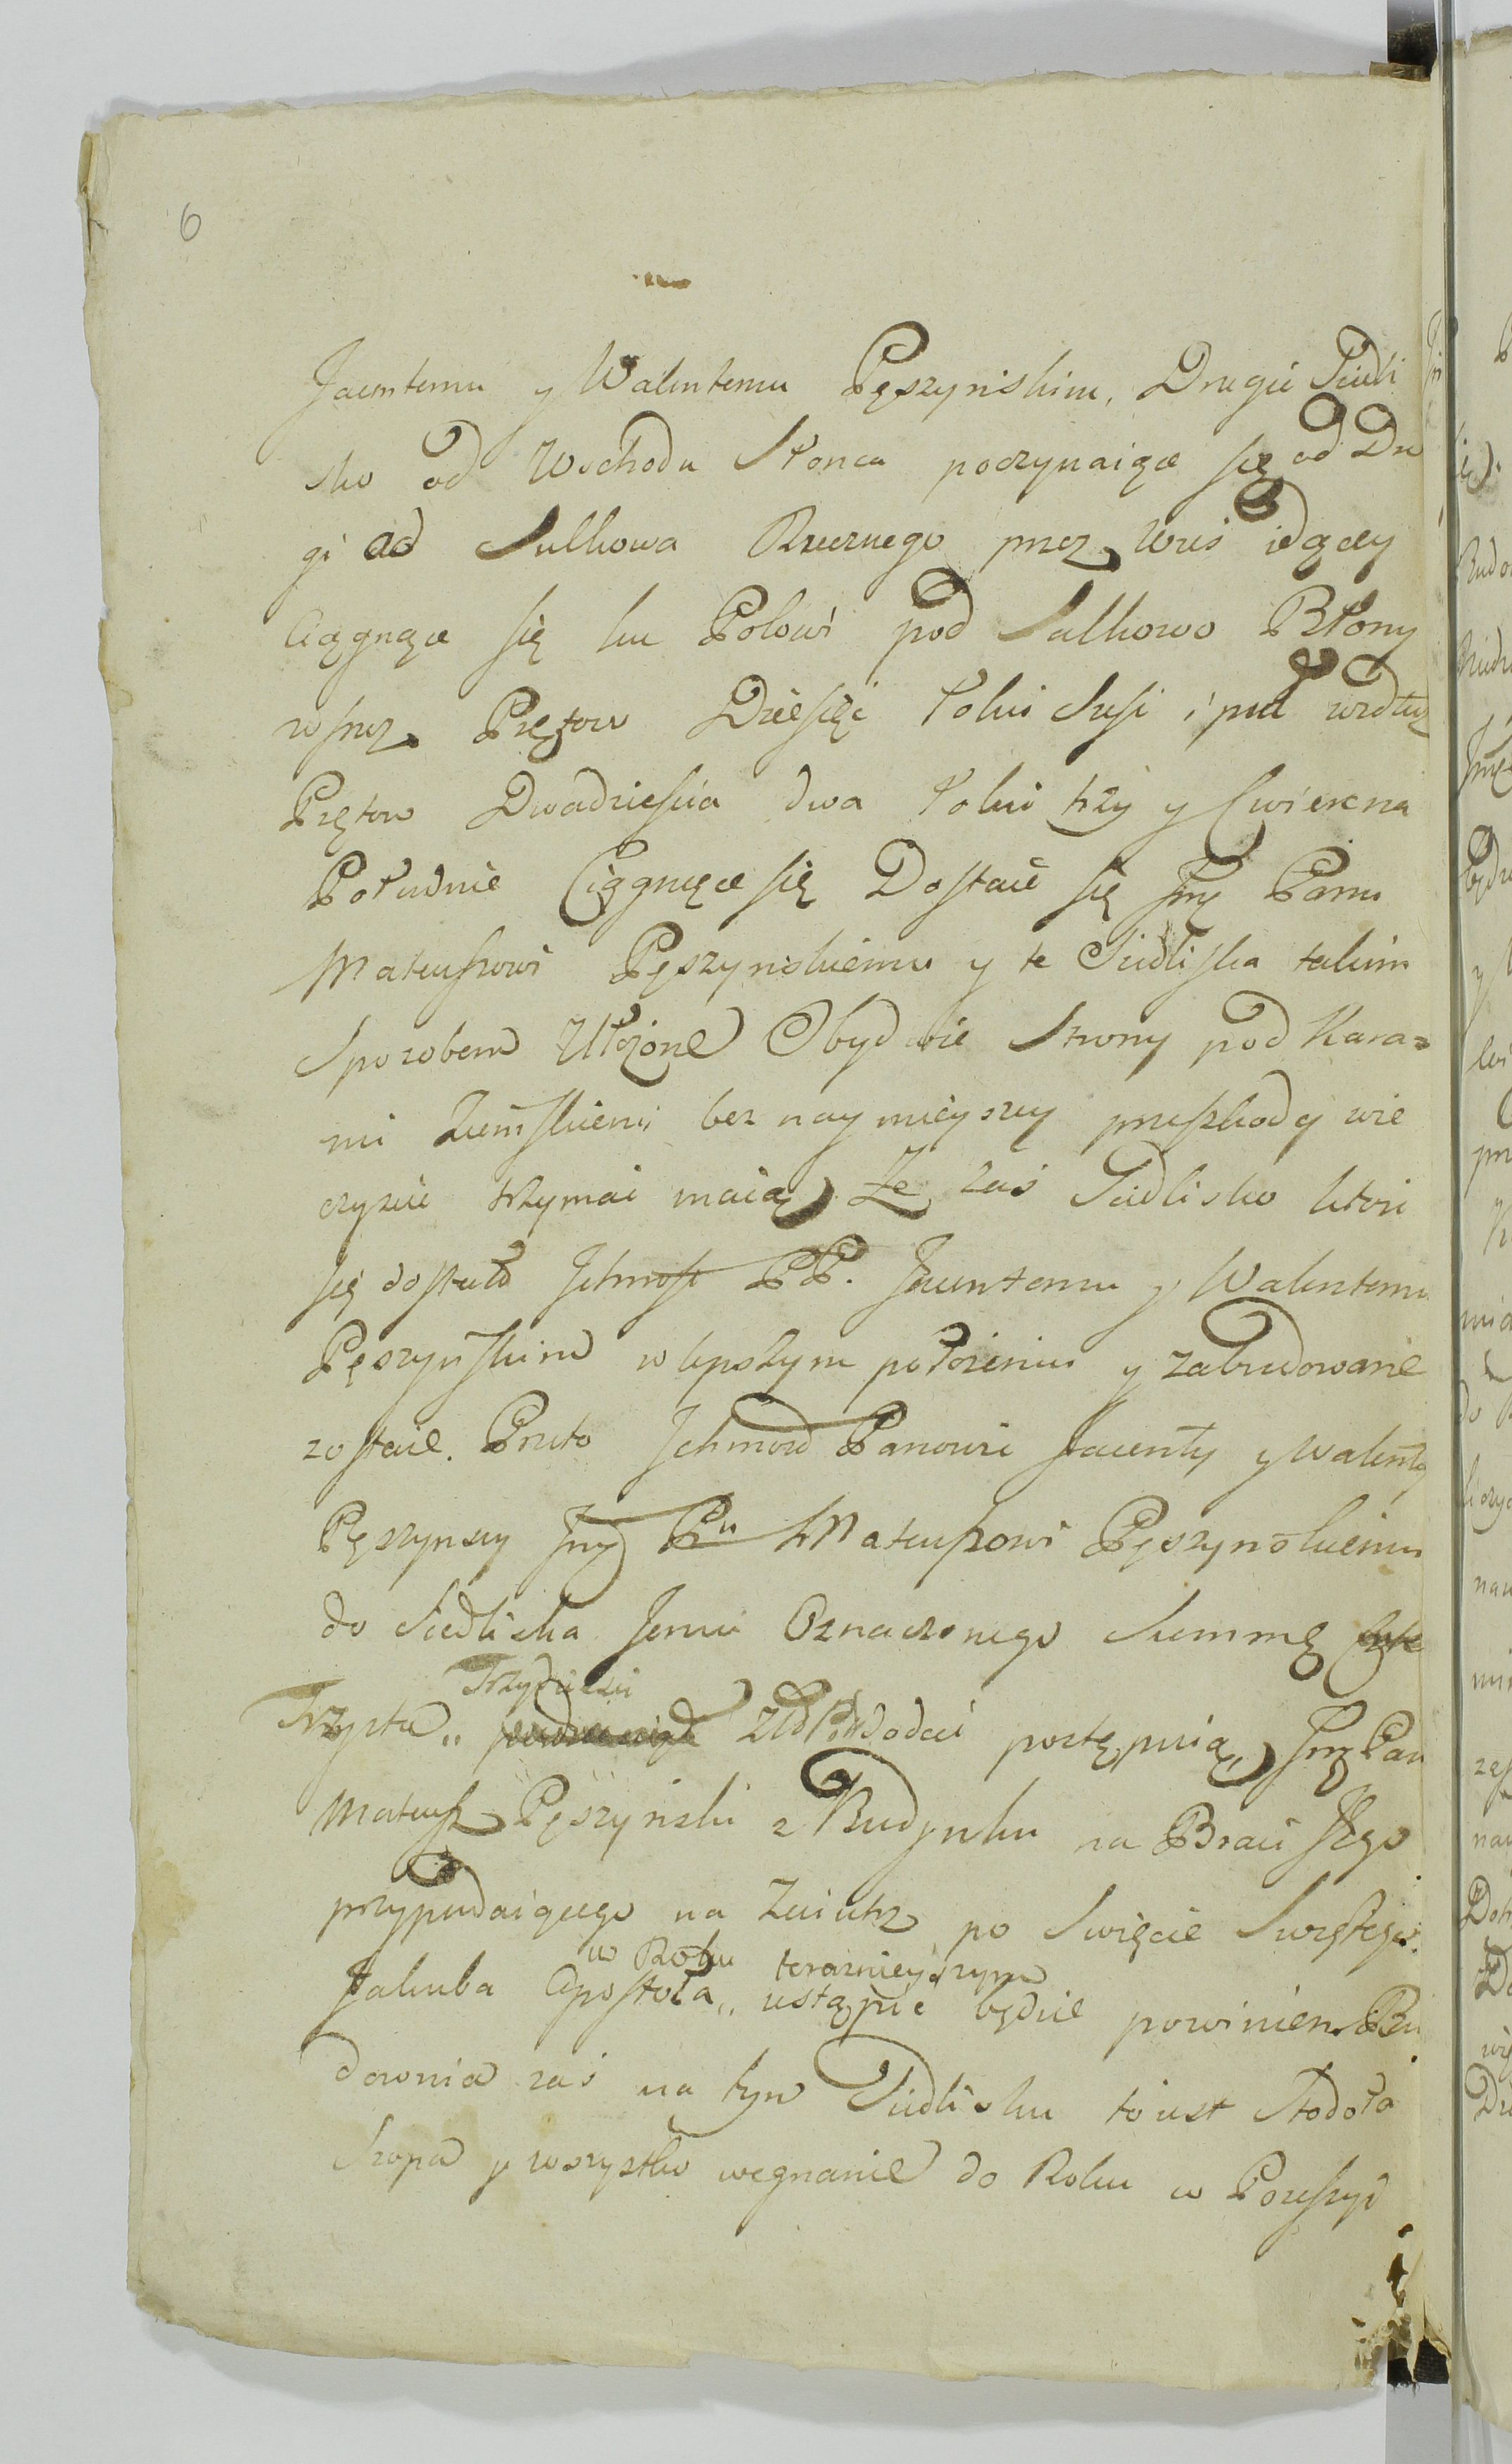 6
Jacentemu y Walentemu Pęszyńskim, Drugie Siedli
sko od Wschodu Słonca poczynaiące się od Dro
gi od Sulkowa Rzecznego przez wieś idącey
Ciągnące się ku Polowi pod Sulkowo Błony
wszerz Prętow Dziesięć Łokci Sześć i puł wzdłuz
Prętow Dwadzieścia dwa Łokci trzy y Cwierc na
Południe Ciągnące się Dostaie się Jmę Panu
Mateuszowi Pęszynskiemu y te Siedliska takim
Sposobem Ułożone Obydwie Strony pod Kara=
mi Ziemskiemi bez naymieyszey przeszkody wie
czyscie trzymać maią) Ze zas Siedlisko ktore
się dostało Jchmośc PP. Jacentemu y Walentemu
Pęszyńskim w lepszym położeniu y zabudowanie
zostaie. Przeto Jchmość Panowie Jacenty y Walenty
Pęszynscy Jmę Pu Mateuszowi Pęszynskiemu
do Siedliska Jemu Oznaczonego Summę
Trzydzieści
Trzysta,, Złł Pol dodać postępuią, Jmę Pan
Mateusz Pęszyński z Budynku na Braci Jego
przypadaiącego na Zaiutrz po Swięcie Swiętego
w Roku teraznieyszym
Jakuba Apostoła,, ustąpić będzie powinien Bu
downia zas na tym Siedlisku to iest Stodoła
Szopa y wszystko wegnanie do Roku w Poszeszyi